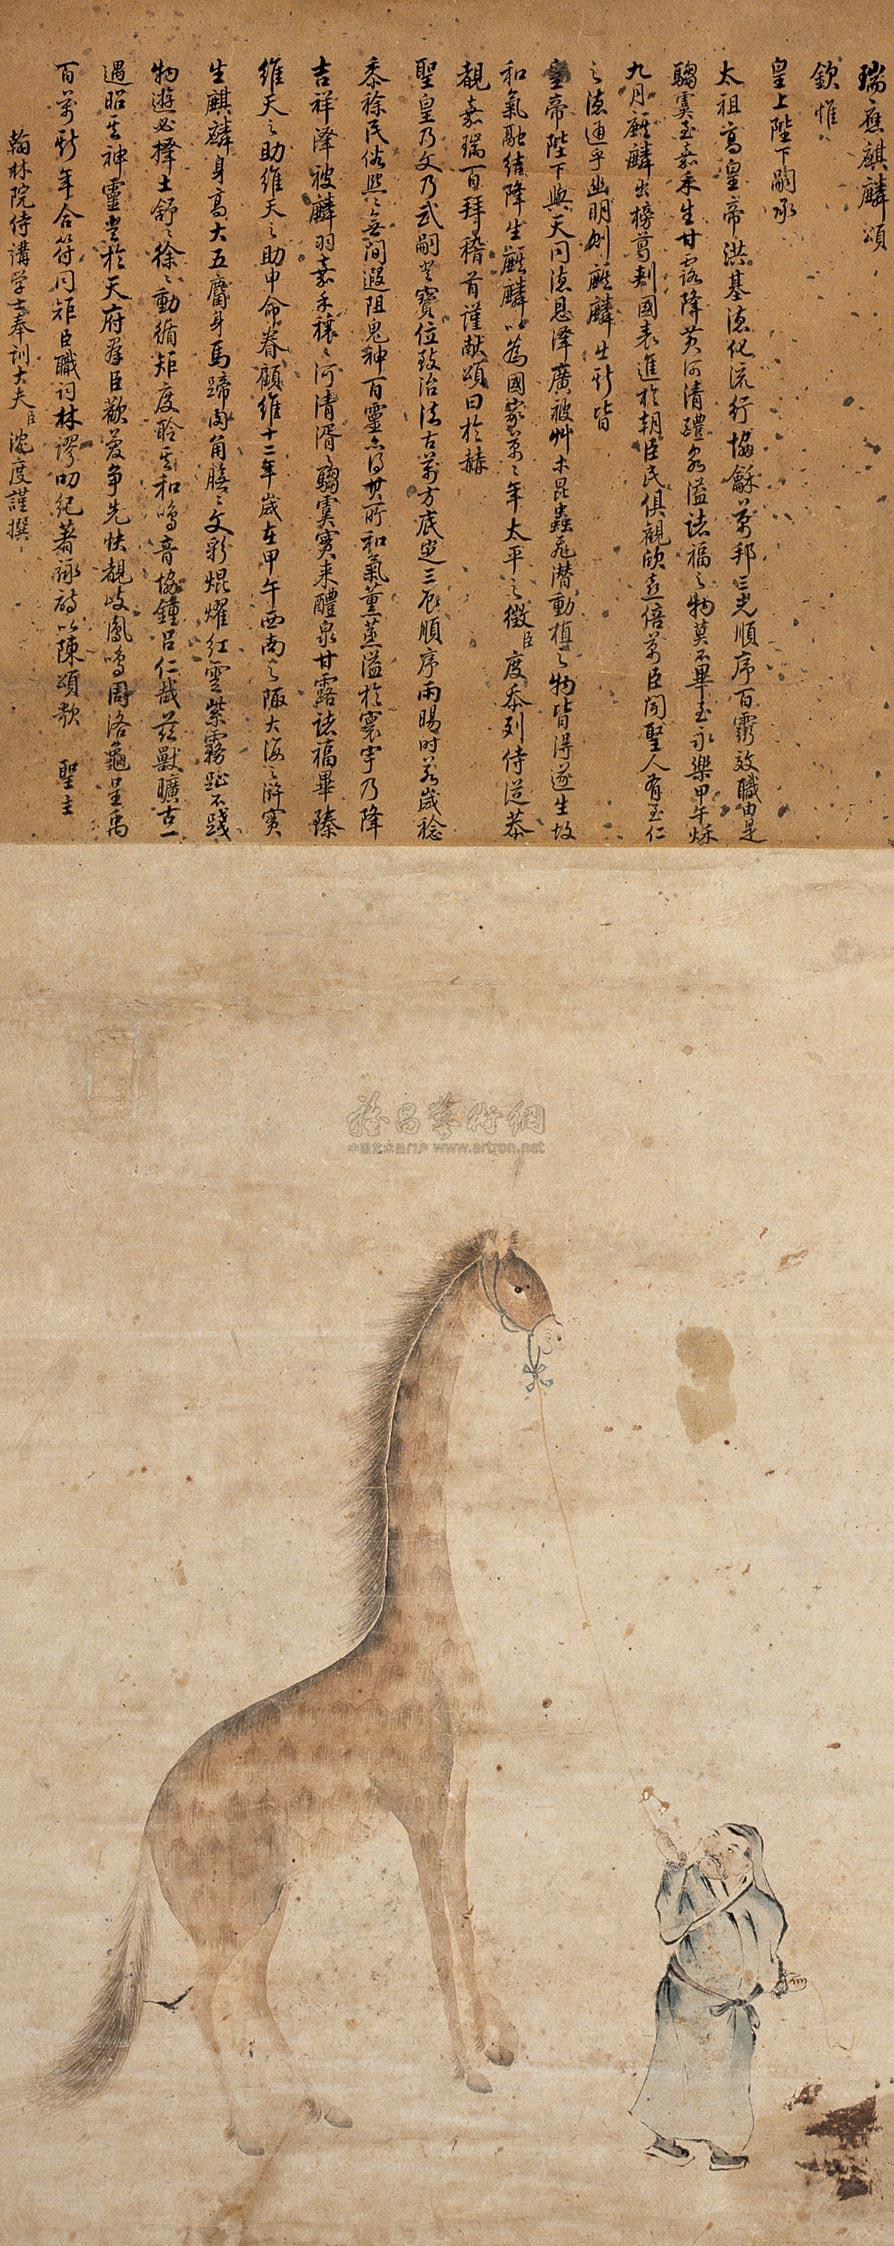 瑞應麒麟頌
欽惟
皇上陛下嗣承
太祖高皇帝洪基德化流行協龢萬邦三光順序百靈效職由是
騶虞至嘉禾生甘露降黃河清醴泉溢諸福之物莫不畢至永樂甲午秋
九月麒麟出榜葛剌國表進於朝臣民俱觀欣喜倍萬臣聞聖人有至仁
之德通乎幽明則麒麟出斯皆
皇帝陛下與天同德恩澤廣被草木昆蟲飛潛動植之物皆得遂生故
和氣融結降生麒麟以為國家萬萬年太平之徵臣度忝列侍從恭
覩嘉瑞百拜稽首謹獻頌曰於赫
聖皇乃文乃武嗣登寶位致治法古萬方底定三辰順序雨暘時若歲稔
黍稌民俗熙熙無間遐阻鬼神百靈亦得其所和氣薰蒸溢於寰宇乃降
吉祥澤被麟羽嘉禾穰穰河清湑湑騶虞實來醴泉甘露諸福畢臻
維天之助維天之助申命眷顧維十二年歲在甲午西南之陬大海之滸實
生麒麟身高大五麕身馬蹄肉角膴膴文彩焜燿紅雲紫霧趾不踐
物遊必擇土舒舒徐徐動循矩度聆其和鳴音協鐘呂仁哉茲獸曠古一
遇昭其神靈登於天府羣臣歡慶爭先快覩岐鳳鳴周洛龜呈禹
百萬斯年合符同矩臣職詞林謬叨紀著詠詩以陳頌歌 聖主
翰林院侍講學士奉訓大夫臣沈度謹撰
雅昌藝術網
中国艺术品门户 www.artron.net